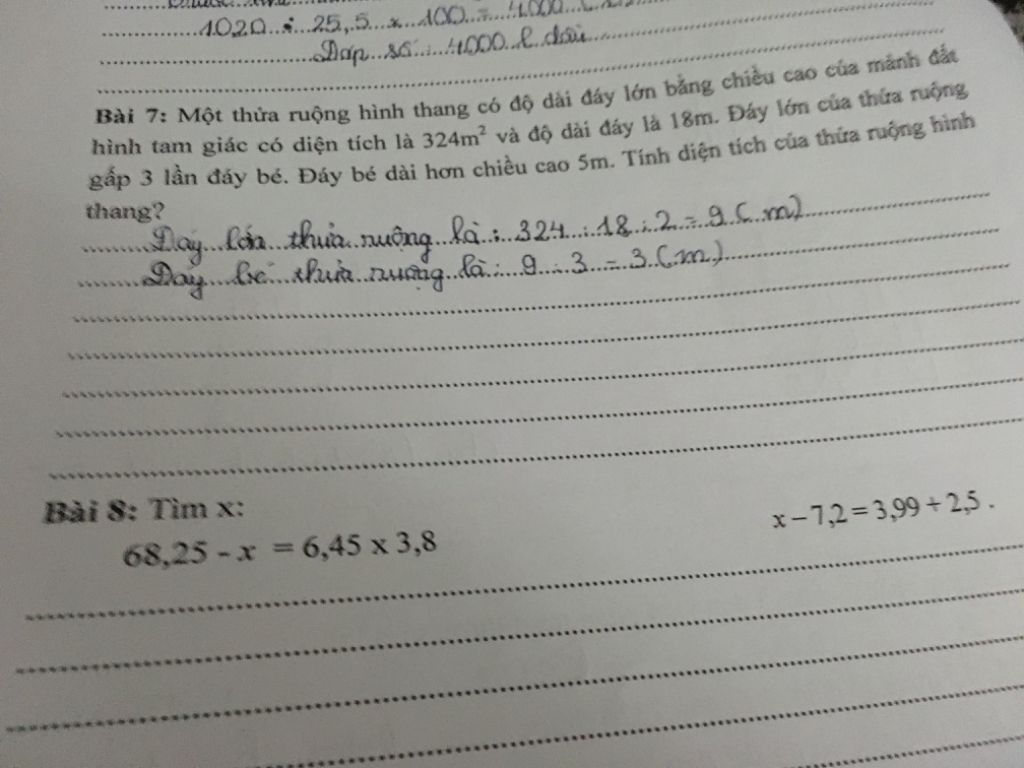 1020 : 25,5 x 100 = 4000
Đáp số : 4000 l dầu
Bài 7: Một thửa ruộng hình thang có độ dài đáy lớn bằng chiều cao của mảnh đất
hình tam giác có diện tích là 324m² và độ dài đáy là 18m. Đáy lớn của thửa ruộng
gấp 3 lần đáy bé. Đáy bé dài hơn chiều cao 5m. Tính diện tích của thửa ruộng hình
thang?
Đáy lớn thửa ruộng là : 324 : 18 : 2 = 9 ( m)
Đáy bé thửa ruộng là : 9 : 3 = 3 (m)
Bài 8: Tìm x:
68,25 - x = 6,45 x 3,8
x – 7,2 = 3,99 + 2,5 .